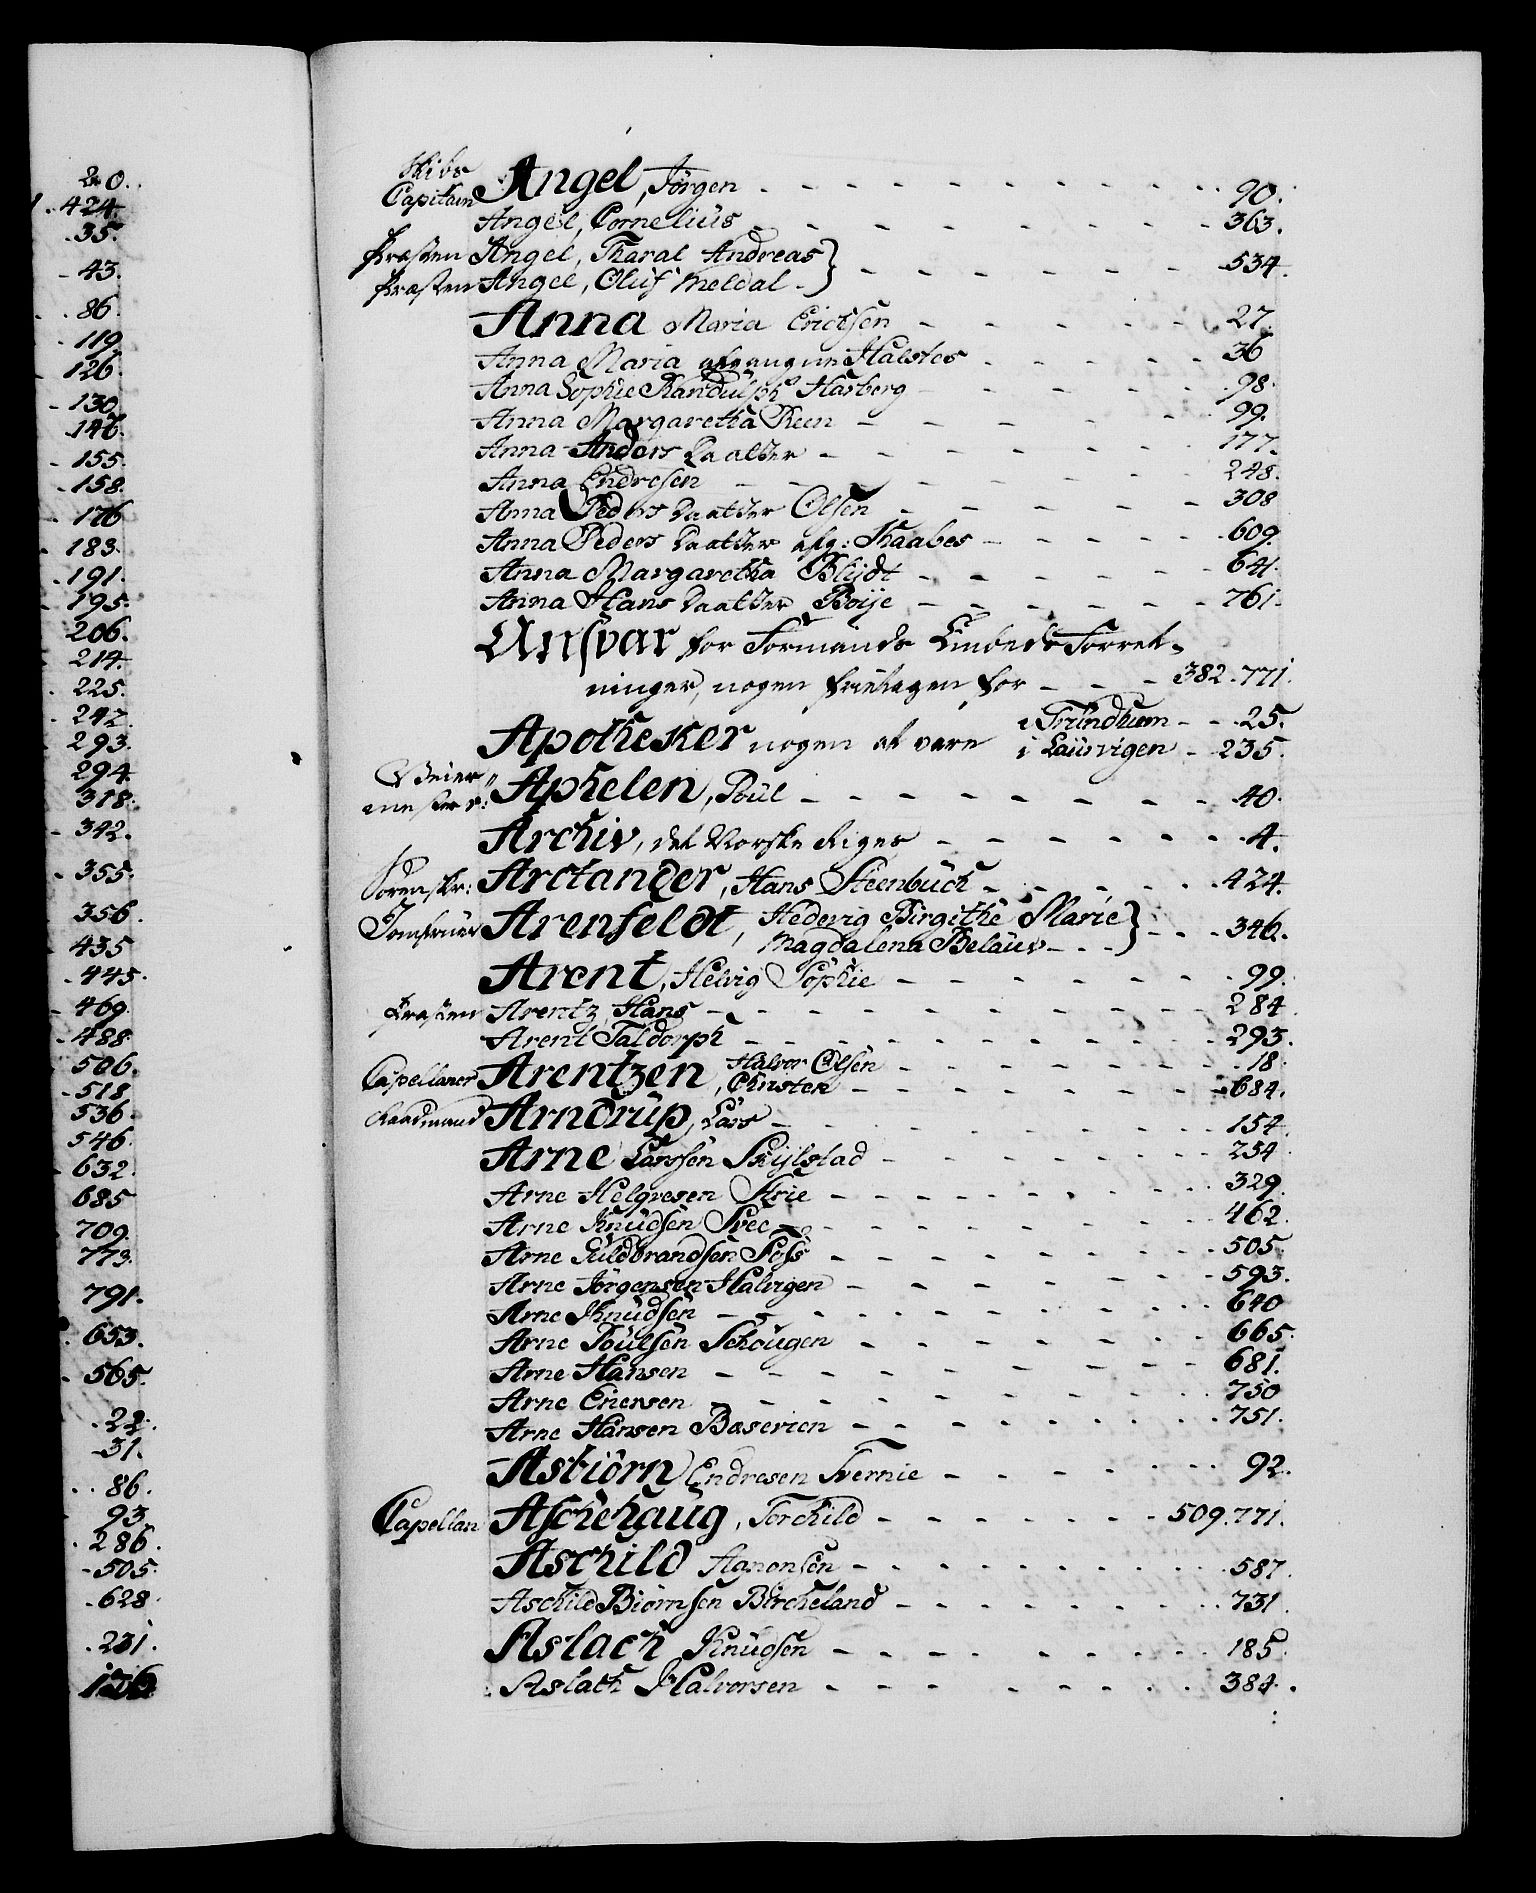 20.
424.
35.
43.
86.
119.
126.
130.
146.
155.
158.
176
183.
191.
195.
206.
214.
225.
242.
293.
294.
318.
342.
355.
356.
435
445.
469.
488.
506.
518.
536.
546.
632.
685
709.
773.
791.
653.
565.
22.
31.
86.
93
286.
505.
628.
231.
Skibs
Capitain Angel, Jörgen - 90.
Angel, Cornelius - 363.
Præsten Angel, Tharal Andreas
Præsten Angel, Oluf Meldal - 534.
Anna Maria Erichsen - 27.
Anna Maria afgangne Halstes - 36
Anna Sophie Randulph Harberg - 98.
Anna Margaretha Reen - 99.
Anna Anders Daatter - 177.
Anna Endresen - 248.
Anna Peders Daatter Olsen - 308
Anna Peders Daatter afg: Kaabes - 609.
Anna Margaretha Blijdt - 641.
Anna Hans Daatter Boije - 761.
Ansvar for Formænds Embeds Forret-
ninger, nogen fritagen for - 382. 771.
Apotheker nogen at være i Trundhiem - 25.
i Laurvigen - 235.
Veier
mester: Aphelen, Poul - 40.
Archiv, det Norske Riges - 4.
Sorenskr: Arctander, Hans Steenbuch - 424.
Jomfruer Arenfeldt, Hedevig Birgithe Marie
Magdalena Belauv - 346.
Arent, Helvig Sophie - 99.
Præsten Arentz, Hans - 284
Arent Taldorph - 293.
Arentzen, Halvor Olsen - 18.
Capellaner , Christen - 684.
Raadmand Arndrup, Lars - 154.
Arne Larssen Skijlstad - 254
Arne Helgresen Strie - 329.
Arne Knudsen Svee - 462.
Arne Guldbrandsen Foss - 505.
Arne Jörgensen Halvigen - 593.
Arne Knudsen - 640
Arne Poulsen Schougen - 665.
Arne Hansen - 681.
Arne Enersen - 750
Arne Hansen Baserien - 751.
Asbiörn Endresen Svernie - 92.
Capellan Aschehaug, Torchild - 509. 771.
Aschild Aanonsen - 587.
Aschild Biörnsen Bircheland - 731
Aslach Knudsen - 185.
Aslach Halvorsen - 384.